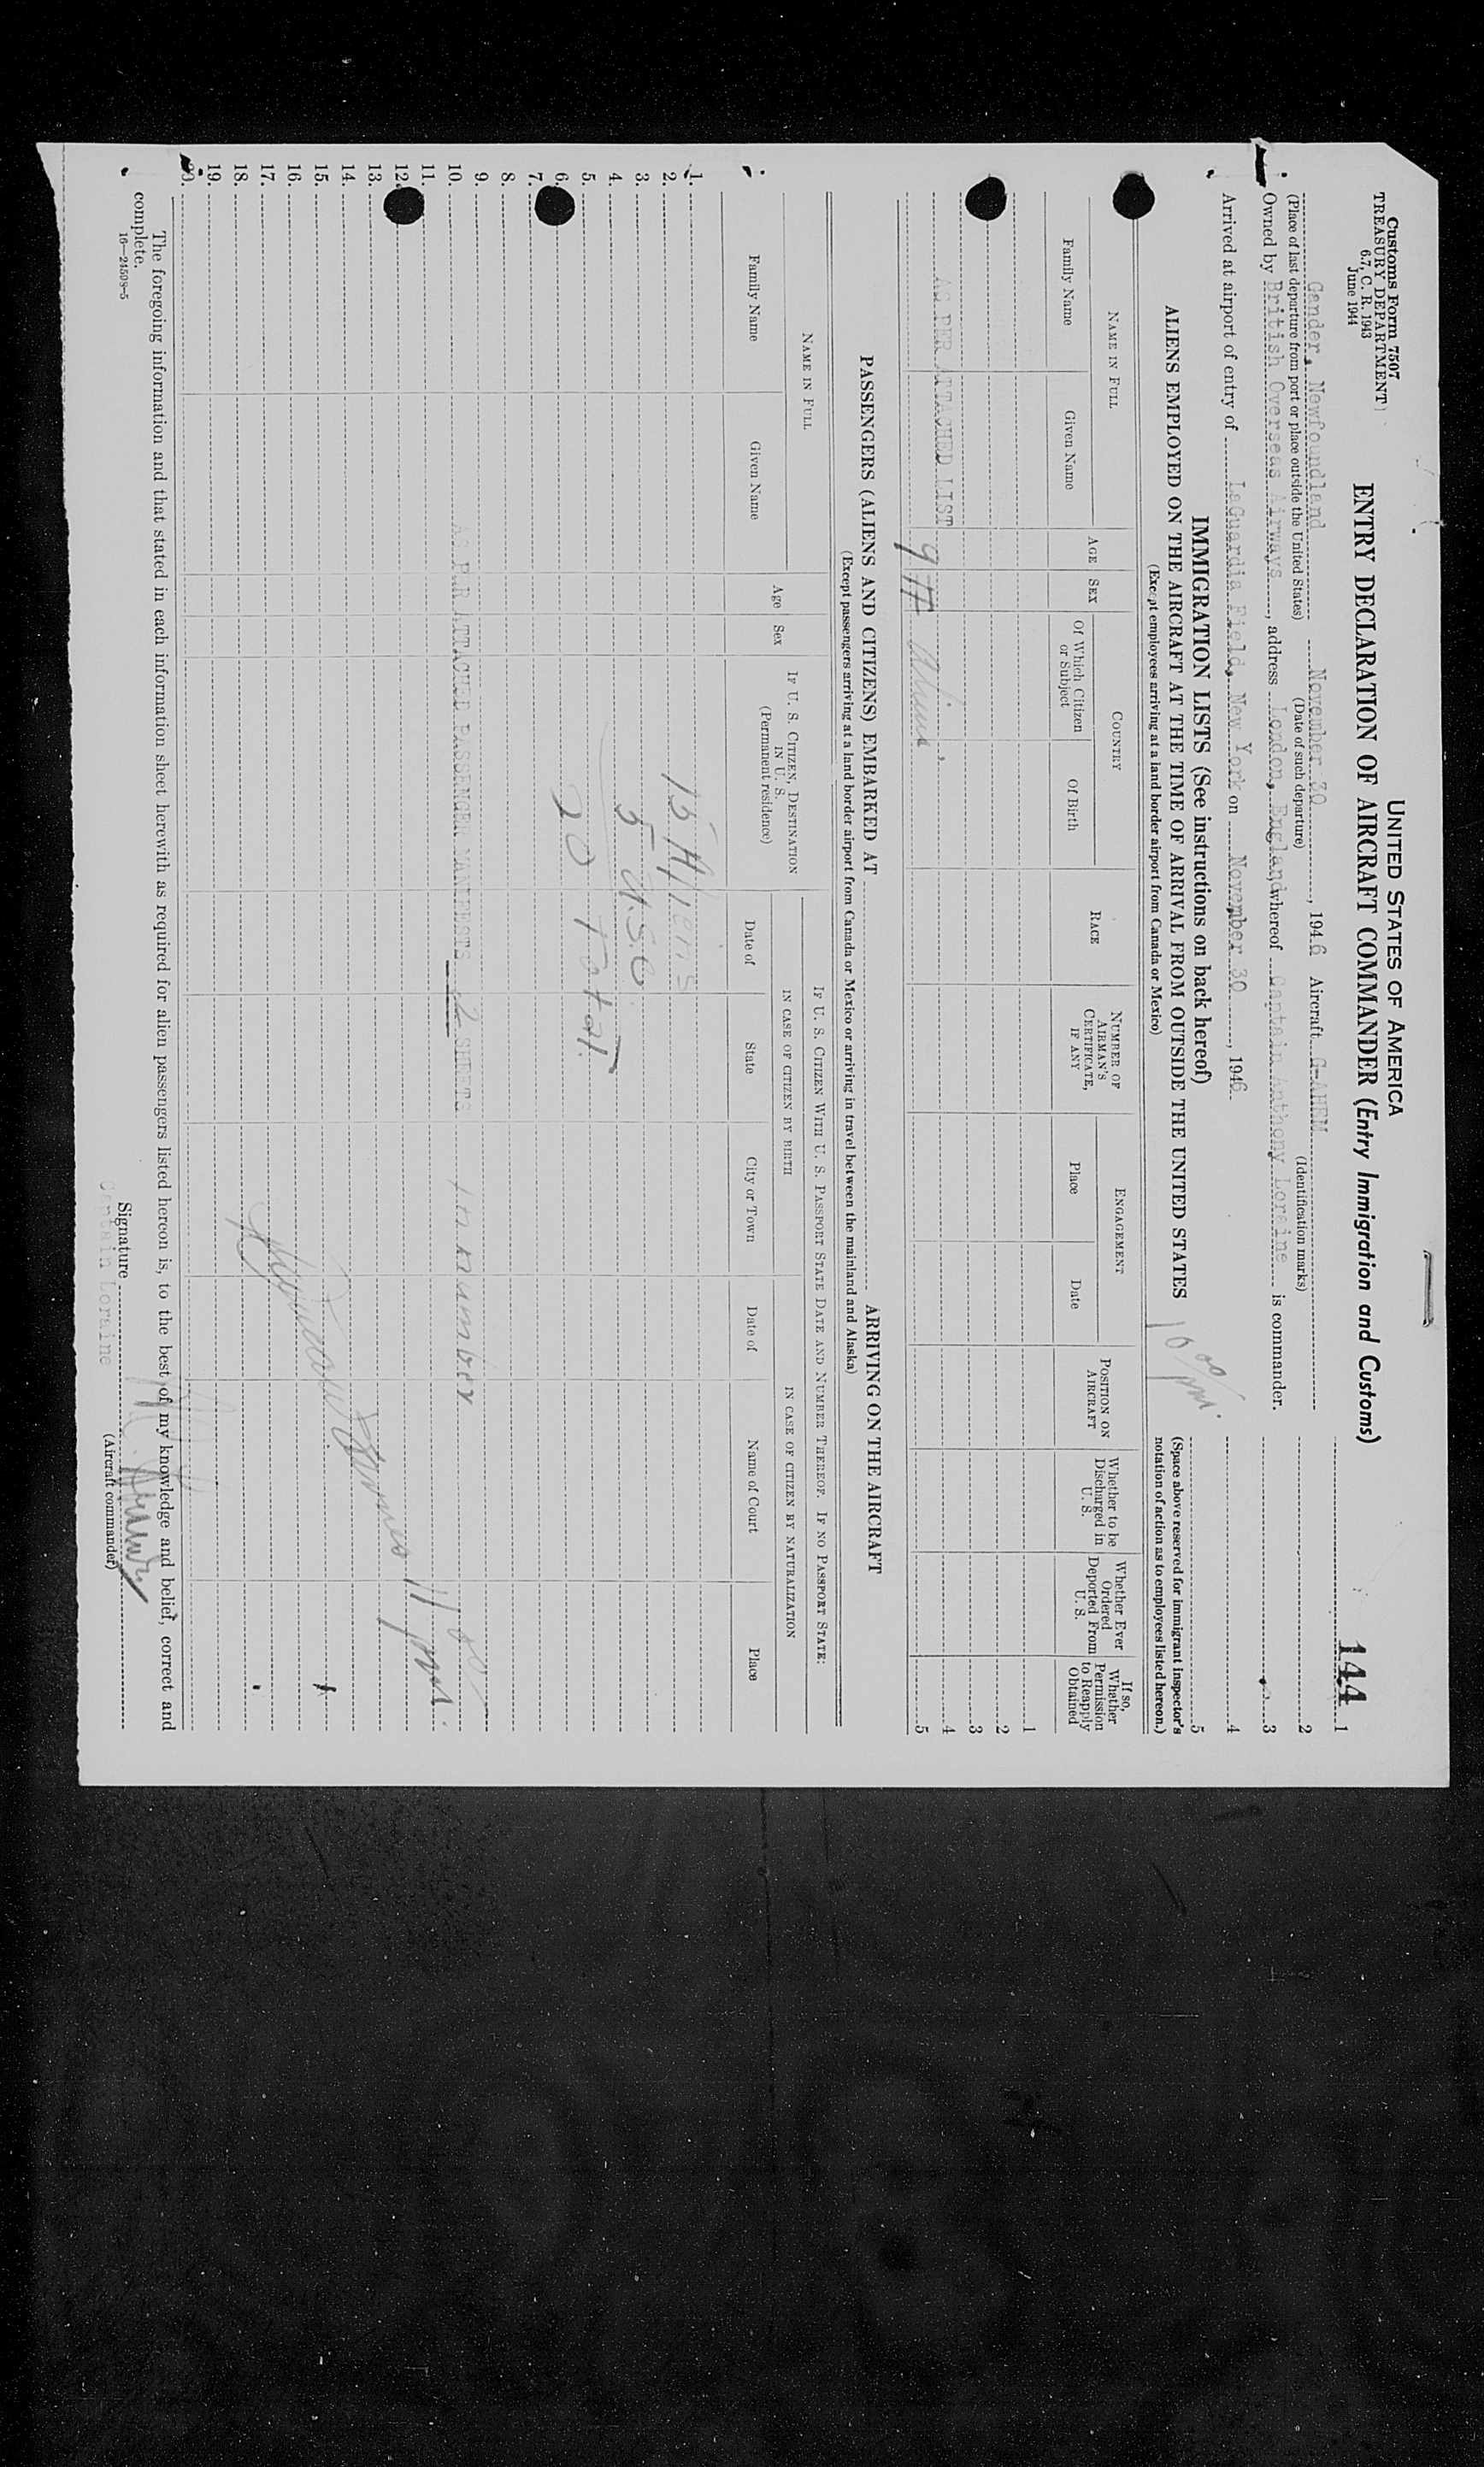 Customs Form 7507
TREASURY DEPARTMENT
6.7, C. R. 1943
June 1944
UNITED STATES OF AMERICA
ENTRY DECLARATION OF AIRCRAFT COMMANDER (Entry Immigration and Customs)
144 1
Gander, Newfoundland November 30, 1946 Aircraft G-AHEM 2
(Place of last departure from port or place outside the United States) (Date of such departure) (Identification marks)
Owned by British Overseas Airways, address London, England whereof Captain Anthony Loraine is commander. 3
Arrived at airport of entry of LaGuardia Field, New York on November 30, 1946 4
5
IMMIGRATION LISTS (See instructions on back hereof)
10 00 pm.
ALIENS EMPLOYED ON THE AIRCRAFT AT THE TIME OF ARRIVAL FROM OUTSIDE THE UNITED STATES
(Space above reserved for immigrant inspector's notation of action as to employees listed hereon.)
(Except employees arriving at a land border airport from Canada or Mexico)
NAME IN FULL
Family Name
Given Name
AGE
SEX
COUNTRY
Of Which Citizen or Subject
Of Birth
RACE
NUMBER OF AIRMAN'S CERTIFICATE, IF ANY
ENGAGEMENT
Place
Date
POSITION ON AIRCRAFT
Whether to be Discharged in U. S.
Whether Ever Ordered Deported From U. S.
If so, Whether Permission to Reapply Obtained
1
2
3
AS PER ATTACHED LIST 4
9 5
PASSENGERS (ALIENS AND CITIZENS) EMBARKED AT ARRIVING ON THE AIRCRAFT
(Except passengers arriving at a land border airport from Canada or Mexico or arriving in travel between the mainland and Alaska)
NAME IN FULL
Family Name
Given Name
Age
Sex
IF U. S. CITIZEN, DESTINATION IN U. S.
(Permanent residence)
IF U. S. CITIZEN WITH U. S. PASSPORT STATE DATE AND NUMBER THEREOF. IF NO PASSPORT STATE:
IN CASE OF CITIZEN BY BIRTH
Date of
State
City or Town
IN CASE OF CITIZEN BY NATURALIZATION
Date of
Name of Court
Place
1.
2. 15 Aliens
3.
4. 5 U.S.C.
5.
6. 20 Total.
7.
8.
9.
10. AS PER ATTACHED PASSENGER MANIFESTS 2 SHEETS in number
11.
12.
13.
14.
15.
16.
17.
18.
19.
20.
The foregoing information and that stated in each information sheet herewith as required for alien passengers listed hereon is, to the best of my knowledge and belief, correct and
complete.
16—24508-5
Signature
(Aircraft commander)
Captain Loraine